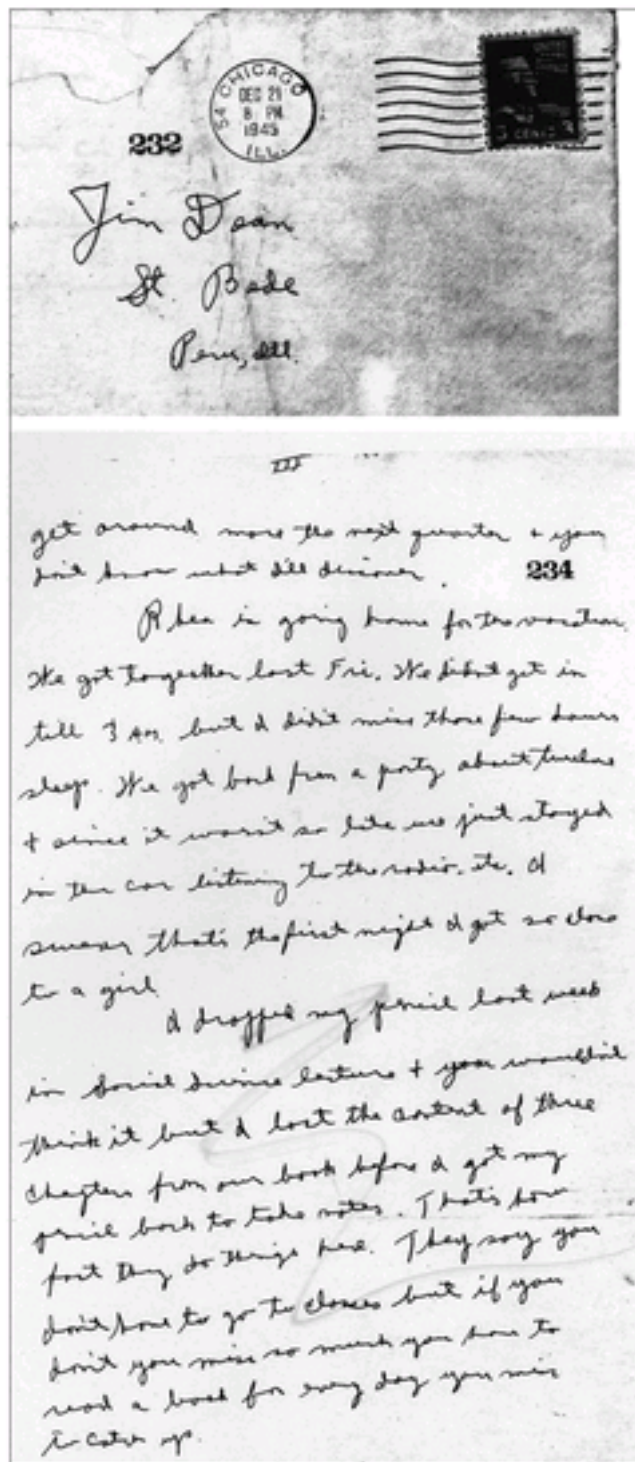 54 CHICAGO
DEC 21
8 PM
1945
ILL.
3 CENTS
232
Jim Dean
St. Bede
Peru, Ill.
III
get around more the next quarter + you
don't know what I'll discover.
234
Rhea is going home for the vacation.
We got together last Fri. We didn't get in
till 3 AM but I didn't miss those few hours
sleep. We got back from a party about twelve
+ since it wasn't so late we just stayed
in the car listening to the radio. etc. I
swear that's the first night I got so close
to a girl.
I dropped my pencil last week
in Social Science lecture + you wouldn't
think it but I lost the content of three
chapters from our book before I got my
pencil back to take notes. That's how
fast they do things here. They say you
don't have to go to classes but if you
don't you miss so much you have to
read a book for every day you miss
to catch up.